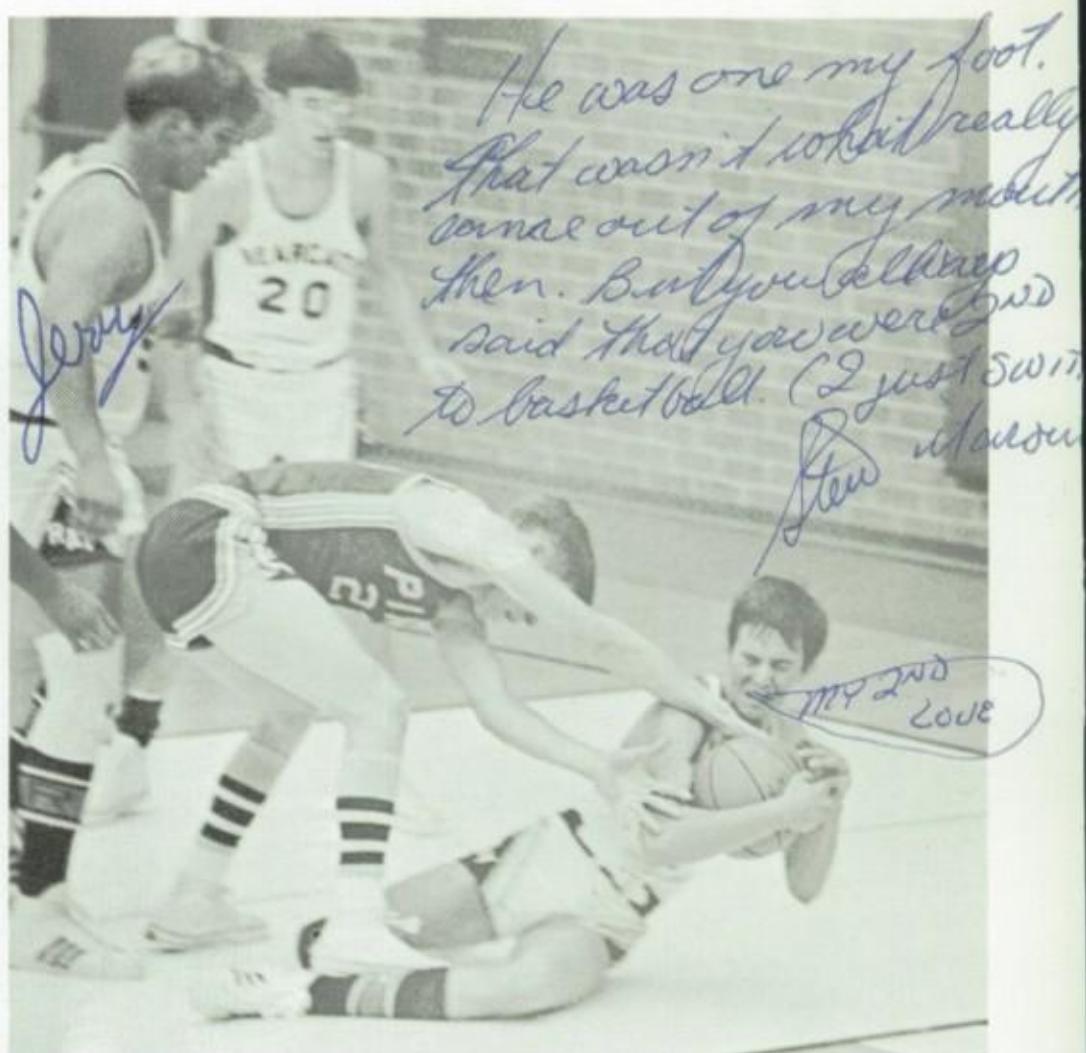 He was one my foot.
That wasn't what really
came out of my mouth
then. But you always
said that you were 2ND
to basketball. (I just
Stew
Jerry
BEARCATS
20
PI
2
MY 2ND
LOVE